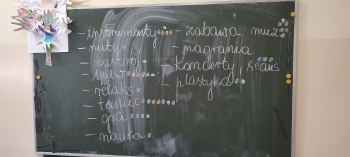 - instrumenty
- nuty
- nastrój
- śpiew
- relaks
- taniec
- gra
- nauka
- zabawa muz
- nagrania
- koncerty, seans
- plastyka